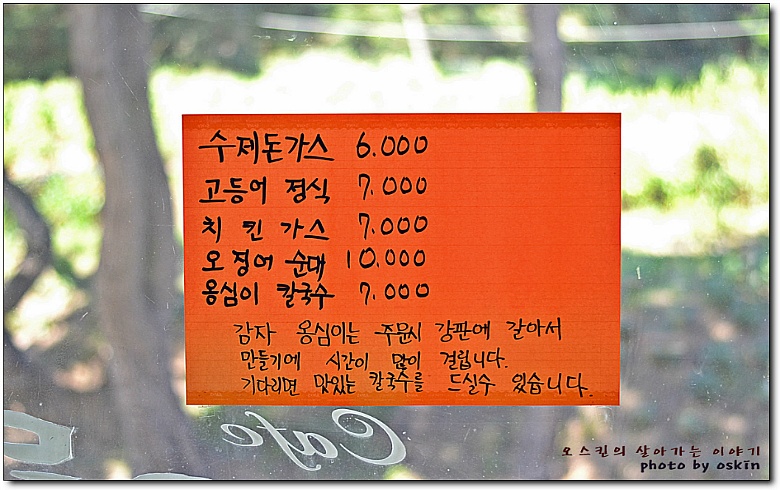 수제돈가스 6.000
고등어 정식 7.000
치킨가스 7.000
오징어 순대 10.000
옹심이 칼국수 7.000
감자 옹심이는 주문시 강판에 갈아서
만들기에 시간이 많이 걸립니다.
기다리면 맛있는 칼국수를 드실수 있습니다.
Cafe
오스킨의 살아가는 이야기
photo by oskin